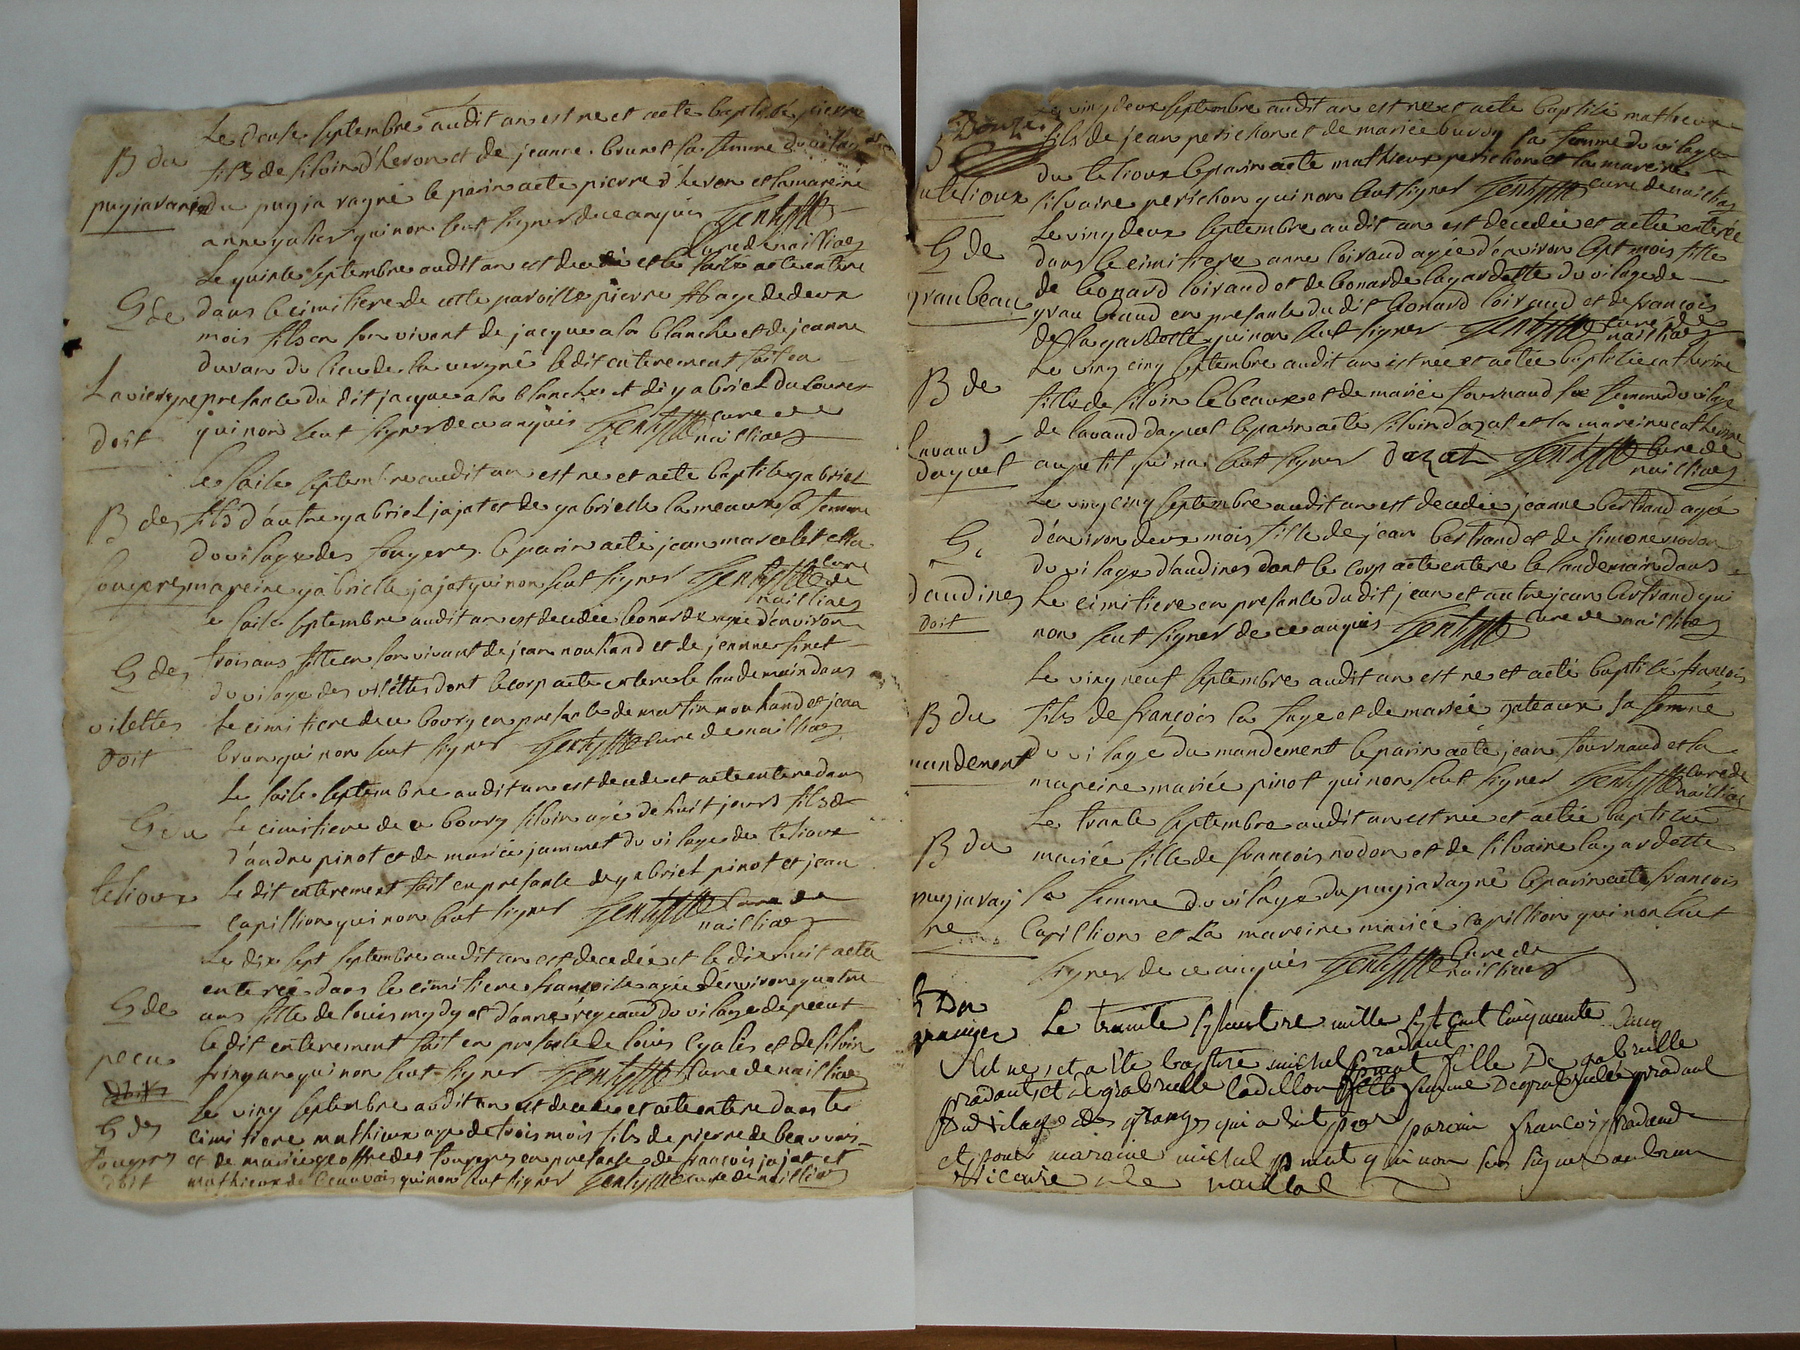 Le douse septembre audit an est ne et aeté baptisé pierre
B du
fils de silvin d'heron et de jeanne brunet sa femme du vilage
puyjavarin
du puyjavagné le parin aeté pierre d'heron et la mareine
anne qui non seut signer de ce anquis
curé de naillias
Le quinse septembre audit an est decedé et le saise aeté enteré
G de
dans le cimitiere de cette paroisse pierre age de deux
mois fils en son vivant de jacque a la blanche et de jeanne
duran du lieu de la vergne le dit enterement fait en
La viergne
presance du dit jacque a la blanche et de gabriel
doit
qui non seut signer de ce anquis curé de
naillias
Le saise septembre audit an est ne et aeté baptisé gabriel
B des
fils d'autre gabriel jajat et de gabrielle lameaux sa femme
du vilage des fougeres le parin aeté jean marcelet et la
fougeres
mareine gabrielle jajat qui non seut signer curé
de
naillias
Le saise septembre audit an est decedée leonarde agée d'environ
G des
trois ans fille en son vivant de jean nouhand et de jeanne finet
du vilage des vilettes dont le corp aeté enteré le landemain dans
vilettes
le cimitiere de ce bourg en presance de martin nouhand et jean
doit
brun qui non seut signer curé de naillias
Le saise septembre audit an est decedé et aeté enteré dans
G du
le cimitiere de ce bourg silvin agé de huit jours fils de
d'andre pinot et de mariee jammet du vilage de telioux
telioux
le dit enterement fait en presance de gabriel pinot et jean
capillion qui non seut signer curé de
naillias
Le dix sept septembre audit an est decedée et le dix huit aeté
enterée dans le cimitiere françoise agée d'environ quatre
G de
ans fille de louis mydy et d'anne regeaud du vilage de pecut
le dit enterement fait en presance de louis et de silvin
pecu
qui non seut signer curé de naillias
doit
Le ving septembre audit an est decedé et aeté enteré dans le
G des
cimitiere mathieux age de trois mois fils de pierre de beauvais
fougeres
et de mariee geoffre des fougeres en presance de françois jajat et
doit
mathieux de beauvais qui non seut signer curé de naillias
Le vingdeux septembre audit an est ne et aeté baptisé mathieux
Donze
fils de jean perichon et de mariee burdy sa femme du vilage
du telioux le parin aeté mathieux perichon et la mareine
telioux
silvaine perichon qui non seut signer curé de naillias
Le vingdeux septembre audit an est decedée et aetée enterée
G de
dans le cimitiere anne loiraud agée d'environ sept mois fille
de leonard loiraud et de leonarde lagardette du vilage de
yraubeau
yraubeaud en presance du dit leonard loiraud et de françois
de lagardette qui non seut signer curé de
naillias
Le ving cinq septembre audit an est nee et aetée baptisée catherine
B de
fille de silvin lebeaux et de mariee fournaud sa femme du vilage
de lavaud daquet le parin aeté silvin dazat et la mareine catherine
lavaud
daquet
aupetit qui na seut signer dazat curé de
naillias
Le ving cinq septembre audit an est decedée jeanne bertrand agée
G
d'environ deux mois fille de jean bertrand et de simone
du vilage d'audines dont le corp aeté enteré le landemain dans
daudines
le cimitiere en presance du dit jean et autre jean bertrand qui
doit
non seut signer de ce anquis curé de naillias
Le ving neuf septembre audit an est ne et aeté baptisé françois
B du
fils de françois la faye et de mariee gateaux sa femme
du vilage du mandement le parin aeté jean fournaud et la
mandement
mareine mariee pinot qui non seut signer curé de
naillias
Le trante septembre audit an est nee et aetée baptisée
B du
mariee fille de françois nodon et de silvaine lagardette
puyjavag
sa femme du vilage du puyjavagné le parin aeté françois
ne
Capillion et la mareine mariee capillion qui non seut
signer de ce anquis curé de
naillias
B Des
granges
Le trante septembre mille sept cent cinquente cinq
est ne et a éte batisée michel pradaut fille De gabrielle
pradaut et de gabrielle cadillon femme
du vilage des granges qui a ait pour parain françois pradaud
et pour maraine qui non seu signer
vicaire de naillat